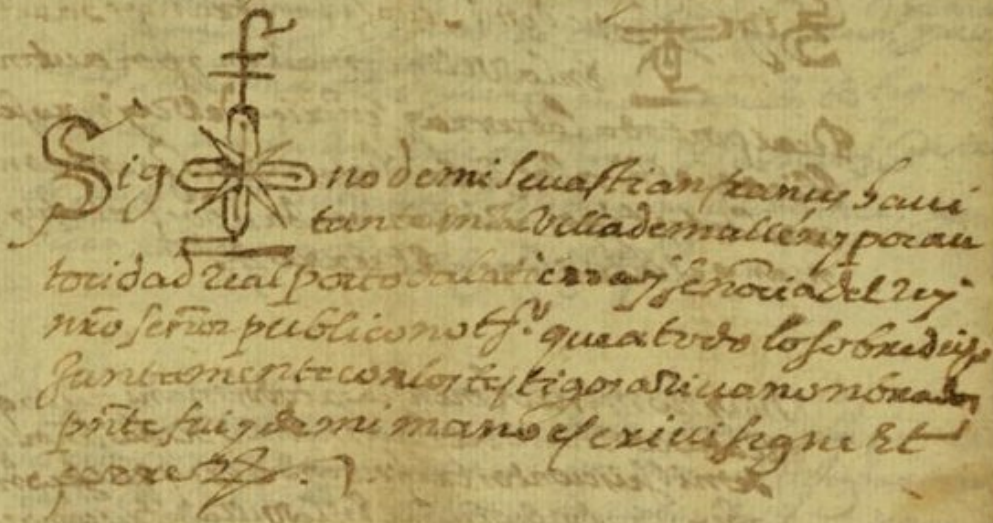 Sig no de mi Sevastian frances havi
tante en la Villa de mallen y por au
toridad real por toda la tierra y señoria del rey
nro señor publico not.º que a todo lo sobre dicho
Juntamente con los testigos arriva nonbrados
pnte fui y de mi mano escrivi signe Et